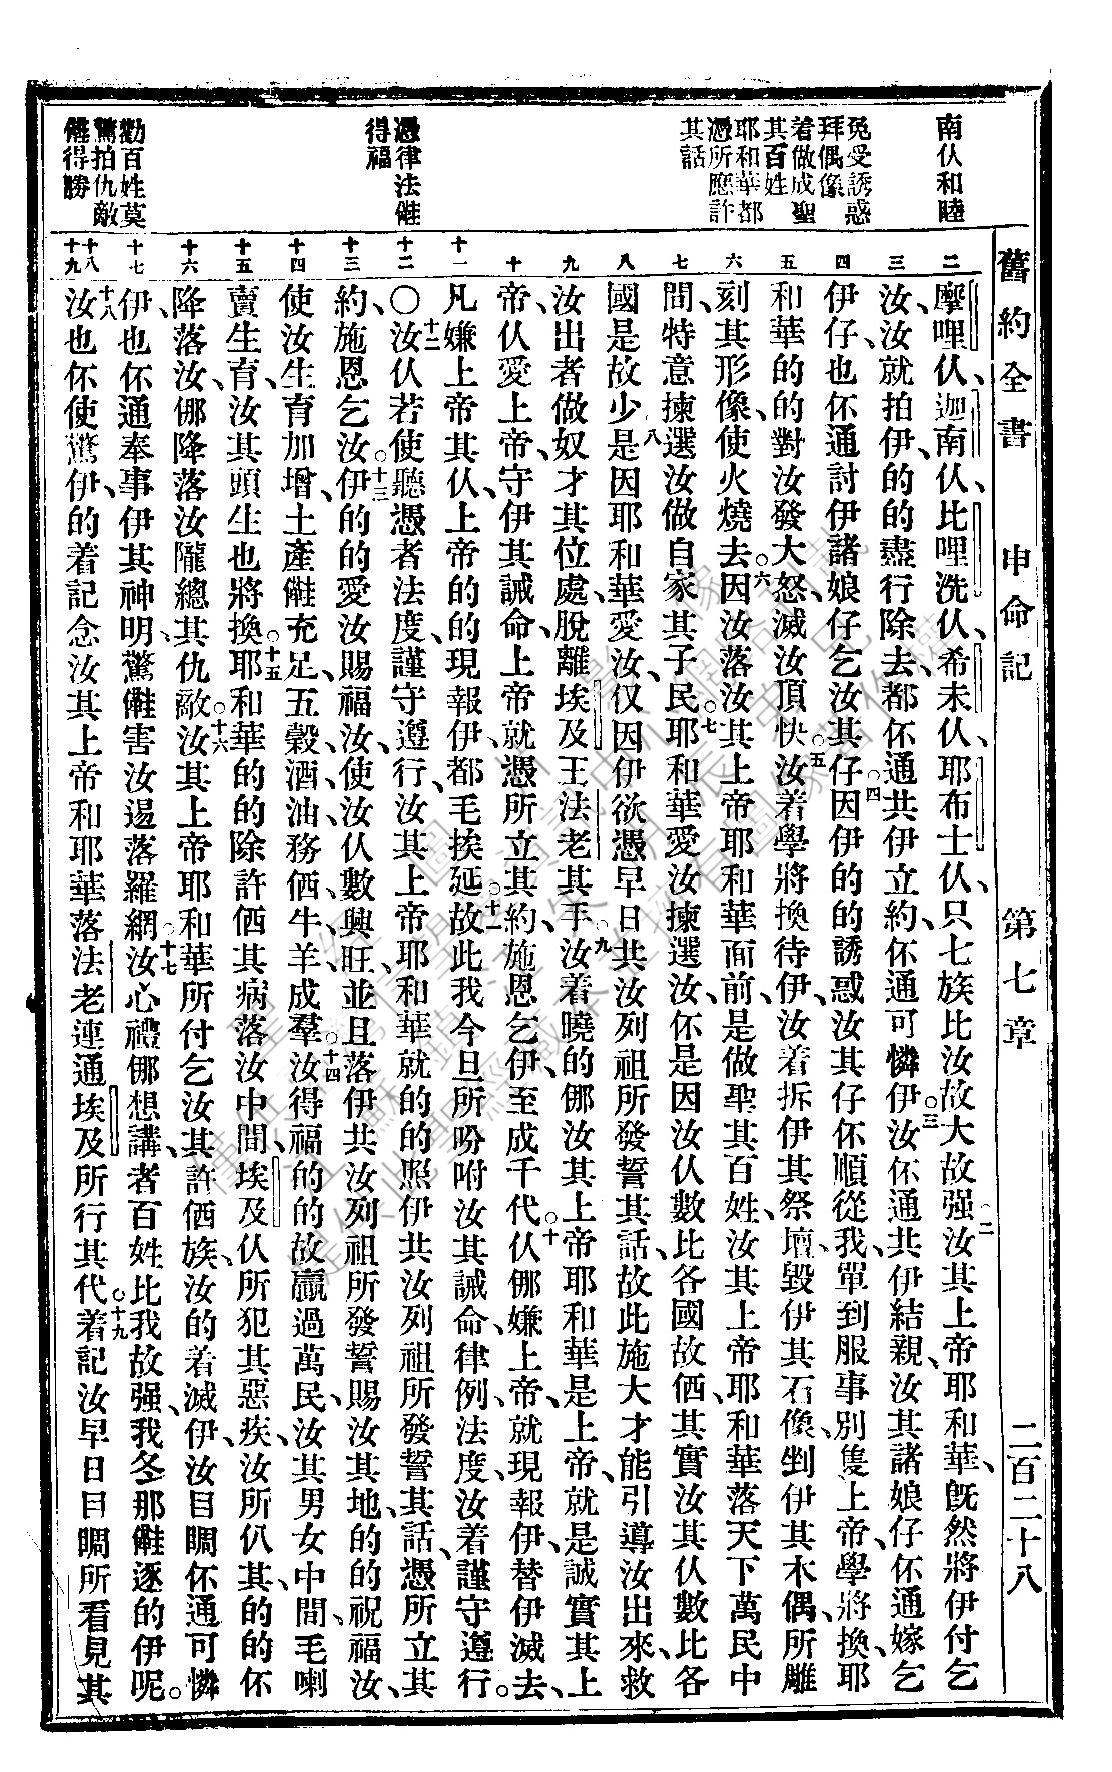 舊約全書 申命記 第七章 二百二十八
南仈和睦
免受誘惑
拜偶像
着做成聖
其百姓
耶和華都
憑所應許
其話
憑律法𣍐
得福
勸百姓莫
驚拍仇敵
𣍐得勝
二 三 四 五 六 七 八 九 十 十一 十二 十三 十四 十五 十六 十七 十八 十九
摩哩仈、迦南仈、比哩洗仈、希未仈、耶布士仈、只七族比汝故大故强、○二汝其上帝耶和華、旣然將伊付乞
汝、汝就拍伊、的的盡行除去、都伓通共伊立約、伓通可憐伊、○三汝伓通共伊結親、汝其諸娘仔伓通嫁乞
伊仔、也伓通討伊諸娘仔乞汝其仔、○四因伊的的誘惑汝其仔伓順從我、單到服事別隻上帝、學將換、耶
和華的的對汝發大怒、滅汝頂快、○五汝着學將換待伊、汝着拆伊其祭壇、毀伊其石像、剉伊其木偶、所雕
刻其形像、使火燒去、○六因汝落汝其上帝耶和華面前、是做聖其百姓、汝其上帝耶和華落天下萬民中
間、特意揀選汝做自家其子民、○七耶和華愛汝揀選汝、伓是因汝仈數比各國故価、其實汝其仈數、比各
國是故少、○八是因耶和華愛汝、仅因伊欲憑早日共汝列祖所發誓其話、故此施大才能、引導汝出來、救
汝出者做奴才其位處、脫離埃及王法老其手、○九汝着曉的、㑚汝其上帝耶和華是上帝、就是誠實其上
帝、仈愛上帝、守伊其誡命、上帝就憑所立其約、施恩乞伊至成千代、○十仈㑚嫌上帝、就現報伊、替伊滅去、
凡嫌上帝其仈、上帝的的現報伊、都毛挨延、○十一故此我今旦所吩咐汝其誡命、律例、法度、汝着謹守遵行。
○十二汝仈若使聽憑者法度、謹守遵行、汝其上帝耶和華就的的照伊共汝列祖所發誓其話、憑所立其
約、施恩乞汝、○十三伊的的愛汝、賜福汝、使汝仈數興旺、並且落伊共汝列祖所發誓賜汝其地、的的祝福汝、
使汝生育加增、土產𣍐充足、五穀、酒、油、務価、牛、羊成羣、○十四汝得福的的故贏過萬民、汝其男女中間、毛喇
賣生育、汝其頭生也將換、○十五耶和華的的除許価其病落汝中間、埃及仈所犯其惡疾、汝所仈其、的的伓
降落汝、㑚降落汝隴總其仇敵、○十六汝其上帝耶和華所付乞汝其許価族、汝的着滅伊、汝目睭伓通可憐
伊、也伓通奉事伊其神明、驚𣍐害汝逿落羅網、○十七汝心禮㑚想講、者百姓比我故强、我冬那𣍐逐的伊呢。
○十八汝也伓使驚伊、的着記念汝其上帝和耶華落法老連通埃及所行其代、○十九着記汝早日目睭所看見其